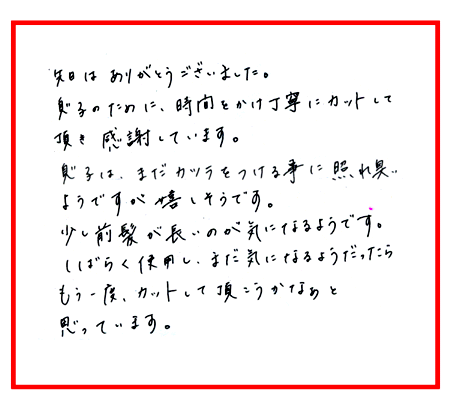 先日は ありがとうございました。
息子のために、時間をかけ丁寧にカットして
頂き 感謝しています。
息子は、まだカツラをつける事に照れ臭い
ようですが嬉しそうです。
少し前髪が長いのが気になるようです。
しばらく使用し、まだ気になるようだったら
もう一度、カットして頂こうかなぁと
思っています。